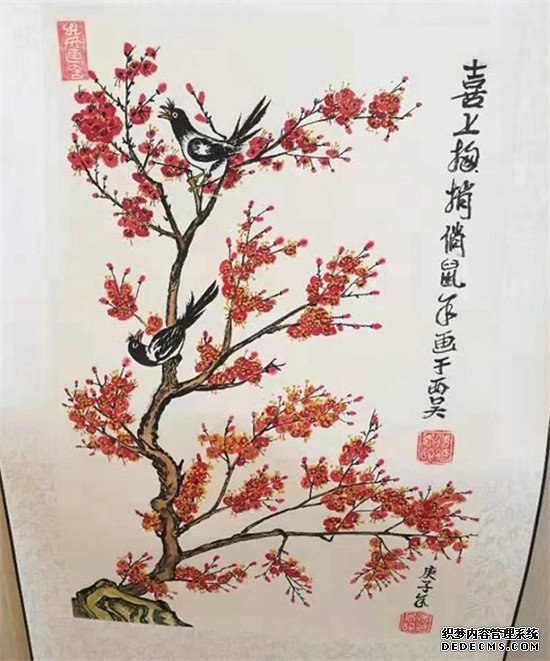 喜上梅梢俏鼠年画于西吴
庚子年
织梦内容管理系统
DEDECMS.COM